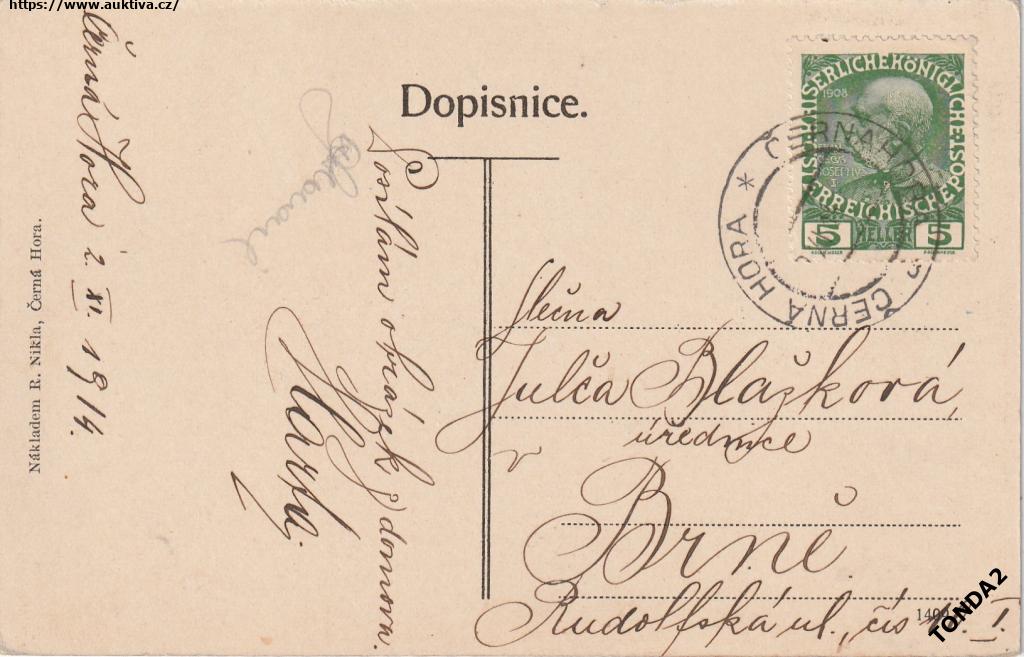 https://www.auktiva.cz/
Dopisnice.
Černá Hora 2. XI. 1914.
Posílám obrázek z domova.
Nákladem R. Nikla, Černá Hora.
KAISERLICHE KÖNIGLICHE ÖSTERREICHISCHE POST
1908
5 HELLER 5
ČERNÁ HORA * ČERNÁ HORA
Slečna
Julča Blažková,
úřednice
v
Brně
Rudolfská ul., čís
I.
TONDA2